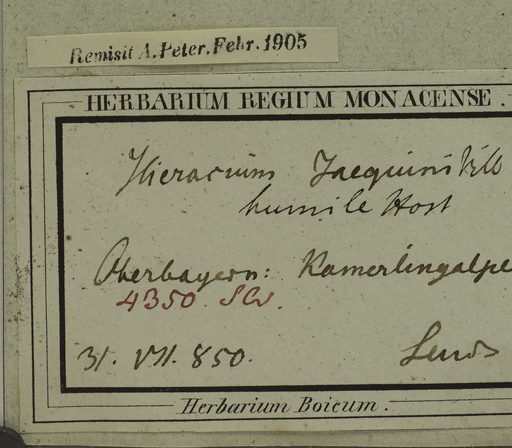 Remisit A. Peter. Febr. 1905
HERBARIUM REGIUM MONACENSE.
Hieracium Jacquini Vill
humile Host
Oberbayern: Kamerlingalpe
4350
31. VII. 850.
Herbarium Boicum.